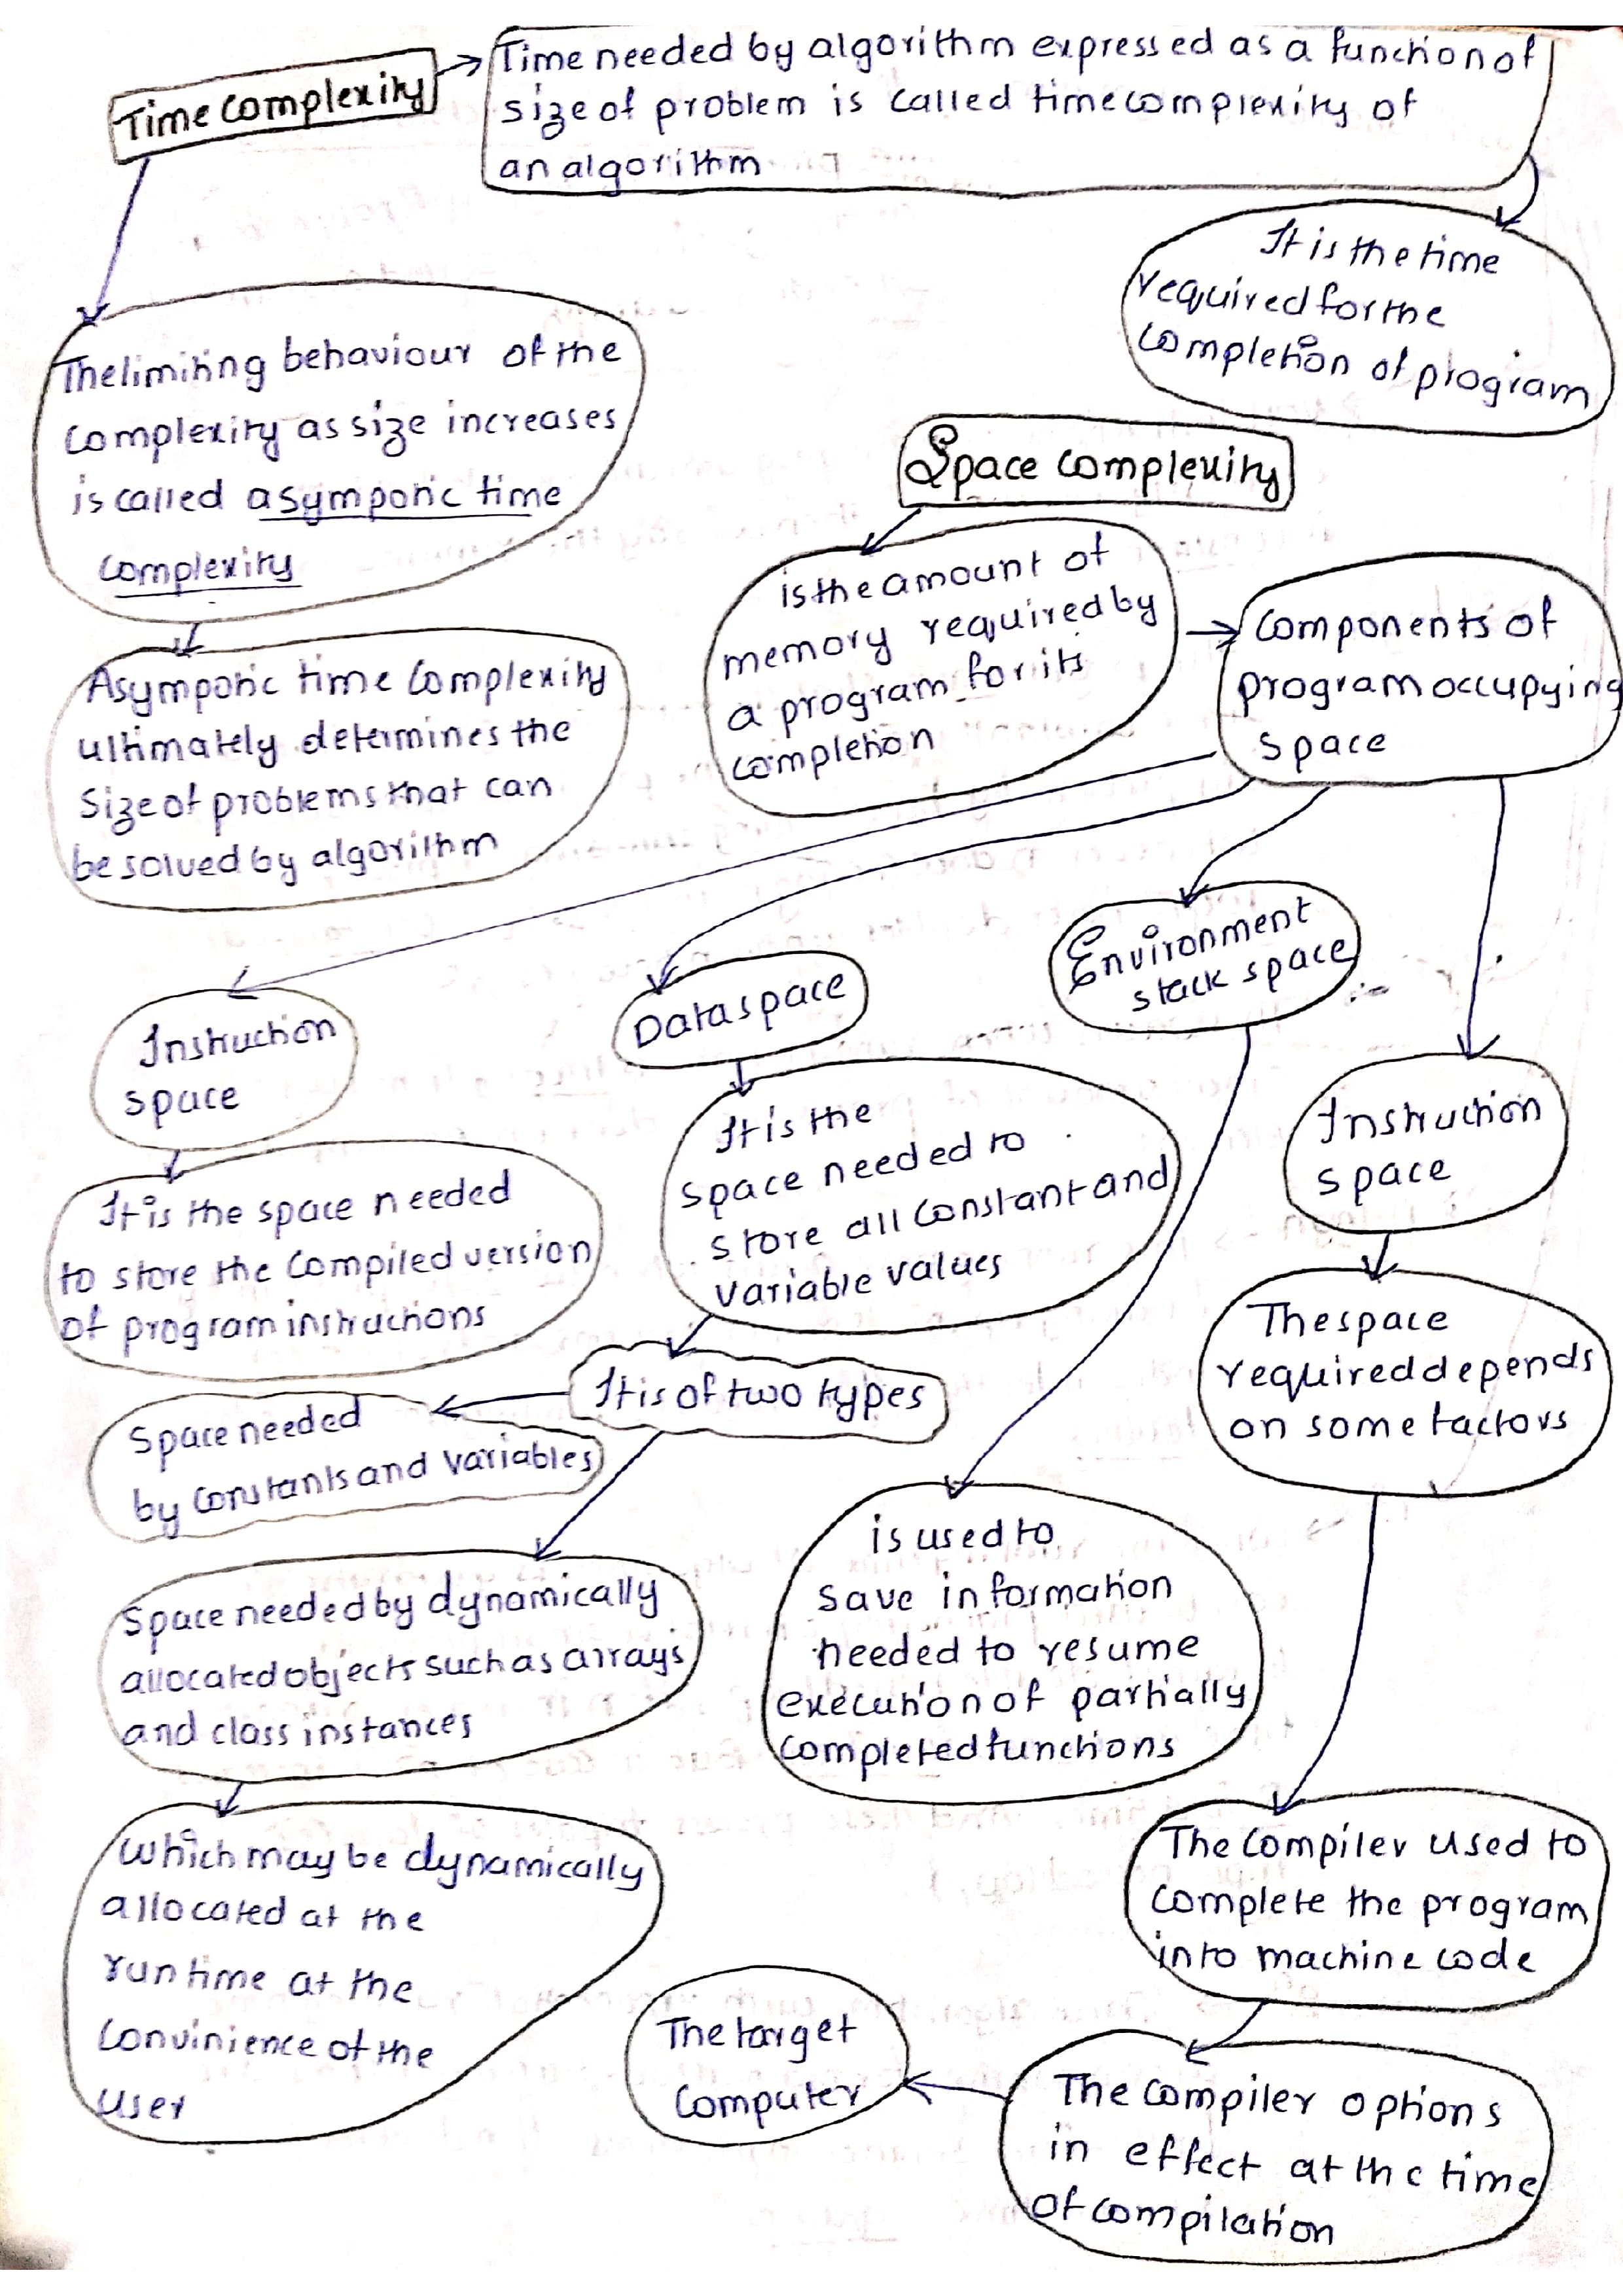 Time complexity
Time needed by algorithm expressed as a function of
size of problem is called time complexity of
an algorithm
It is the time
required for the
completion of program
The limiting behaviour of the
complexity as size increases
is called asympotic time
complexity
Asympotic time complexity
ultimately determines the
size of problems that can
be solved by algorithm
Space complexity
is the amount of
memory required by
a program for its
completion
components of
program occupying
space
Instruction
space
It is the space needed
to store the compiled version
of program instructions
Data space
It is the
space needed to
store all constant and
variable values
It is of two types
Space needed
by constants and variables
Space needed by dynamically
allocated objects such as arrays
and class instances
Which may be dynamically
allocated at the
run time at the
convinience of the
user
Environment
stack space
is used to
save information
needed to resume
execution of partially
completed functions
Instruction
space
The space
required depends
on some factors
The compiler used to
complete the program
into machine code
The compiler options
in effect at the time
of compilation
The target
computer